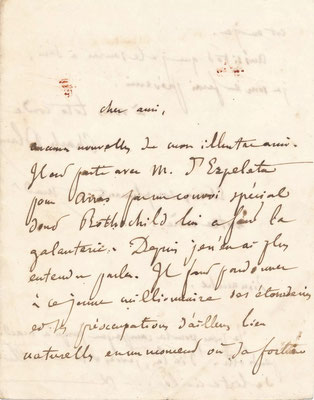 cher ami,
aucune nouvelles de mon illustre ami.
Il est parti avec M. d'Ezpelata
pour Arras par un convoi spécial
dont Rothschild lui a fait la
galanterie. Depuis je n'en ai plus
entendu parler. Il faut pardonner
à ce jeune millionnaire ses étourderies
et ses préoccupations d'ailleurs bien
naturelles en un moment où sa fortune